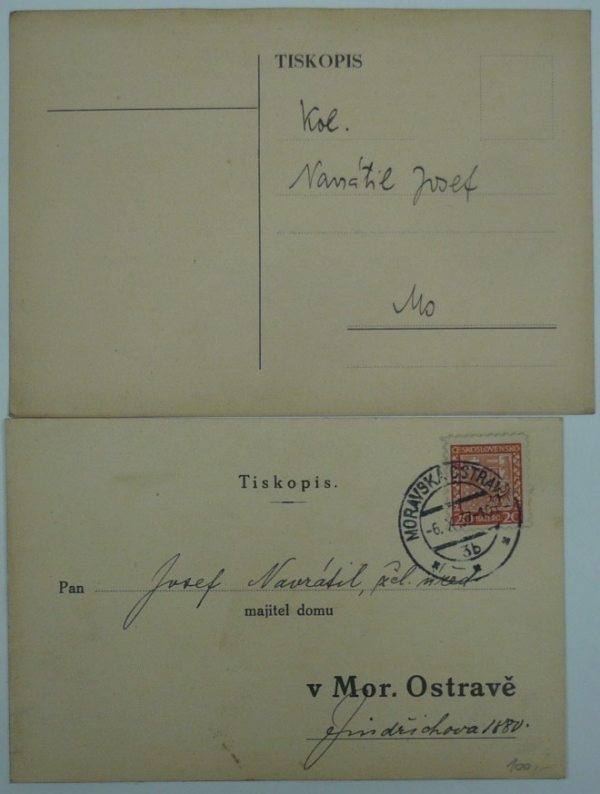 TISKOPIS
Kol.
Navrátil Josef
Mo
Tiskopis.
ČESKOSLOVENSKO
20 20
MORAVSKÁ OSTRAVA
-6.
3b
Pan Josef Navrátil, žel. úřed.
majitel domu
v Mor. Ostravě
Jindřichova 1880.
100,-